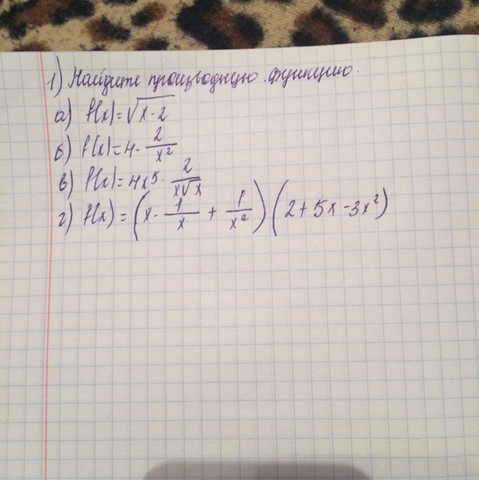 1) Найдите производную функцию.
а) f(x)=√(x-2)
б) f(x)=4-2/x²
в) f(x)=4x⁵-2/(x√x)
г) f(x)=(x-1/x+1/x²)(2+5x-3x²)